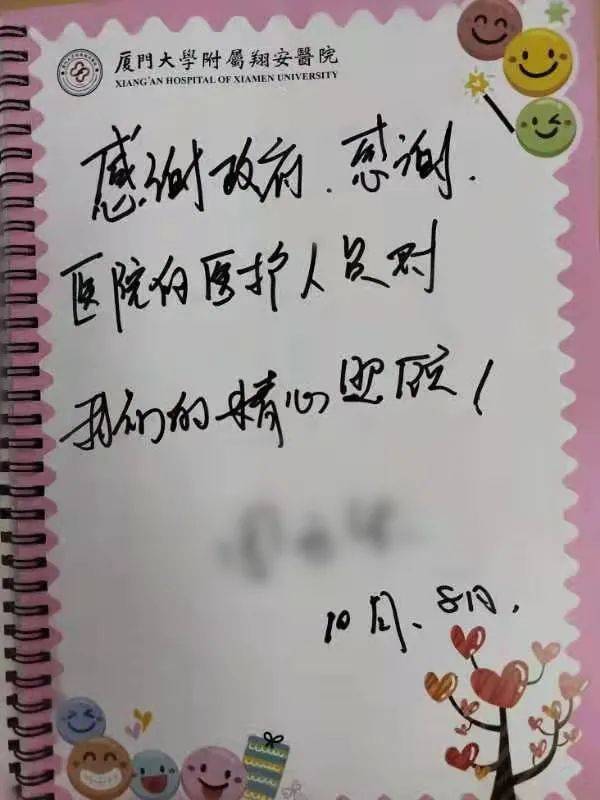 厦門大學附屬翔安醫院
XIANG'AN HOSPITAL OF XIAMEN UNIVERSITY
感谢政府、感谢
医院的医护人员对
我们的精心照顾!
10月、8日.